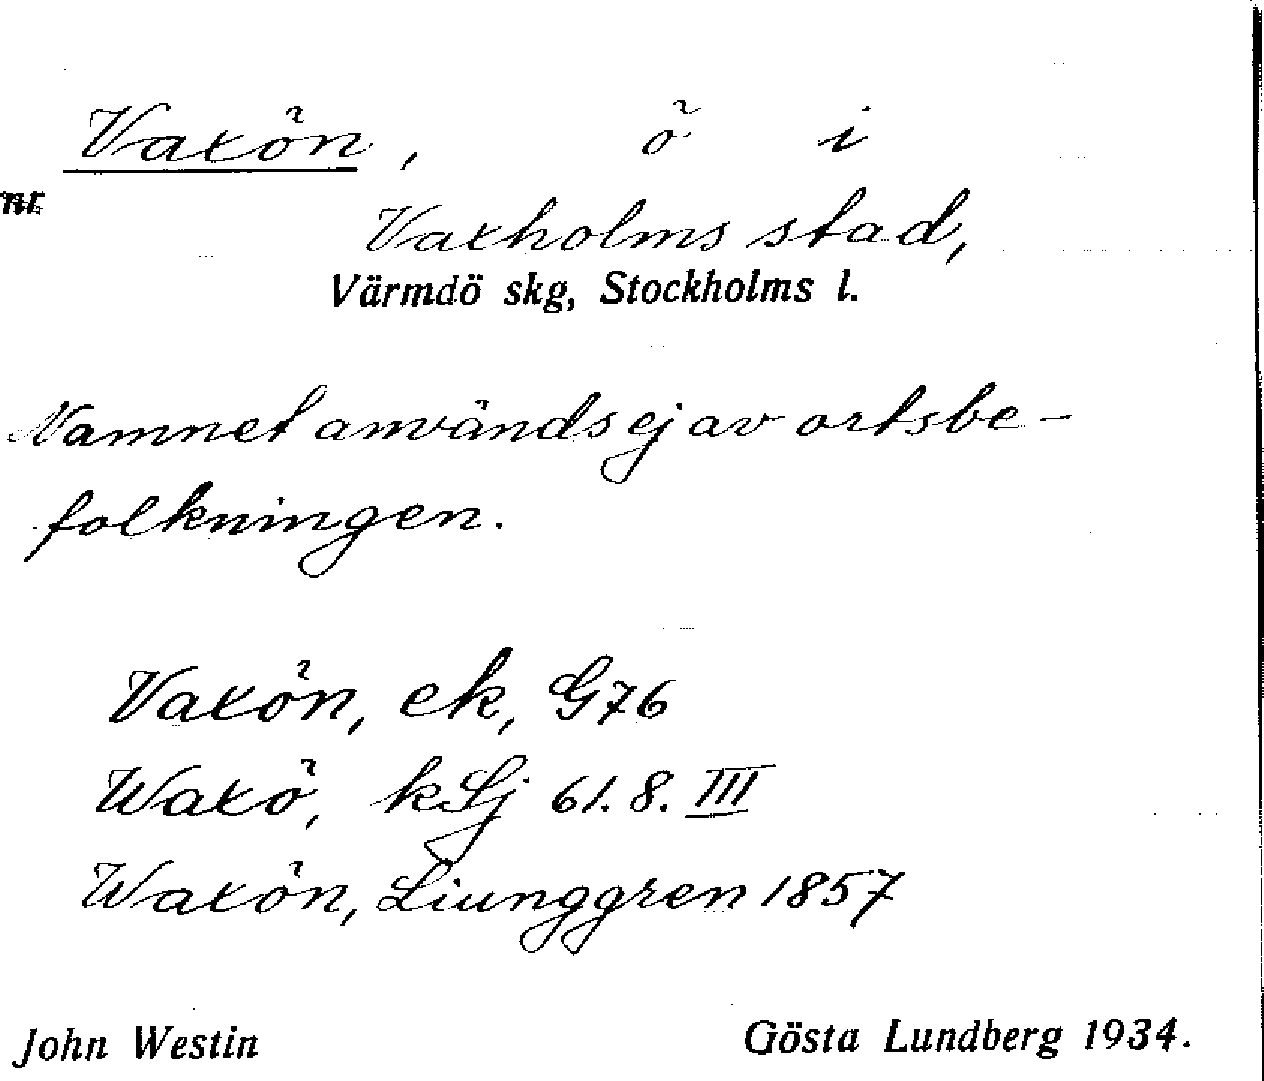 Vaxön, ö i
nr
Vaxholms stad,
Värmdö skg, Stockholms l.
Namnet används ej av ortsbe-
folkningen.
Vaxön, ek, G76
Waxö, kLj 61. 8. III
Waxön, Liunggren 1857
John Westin Gösta Lundberg 1934.